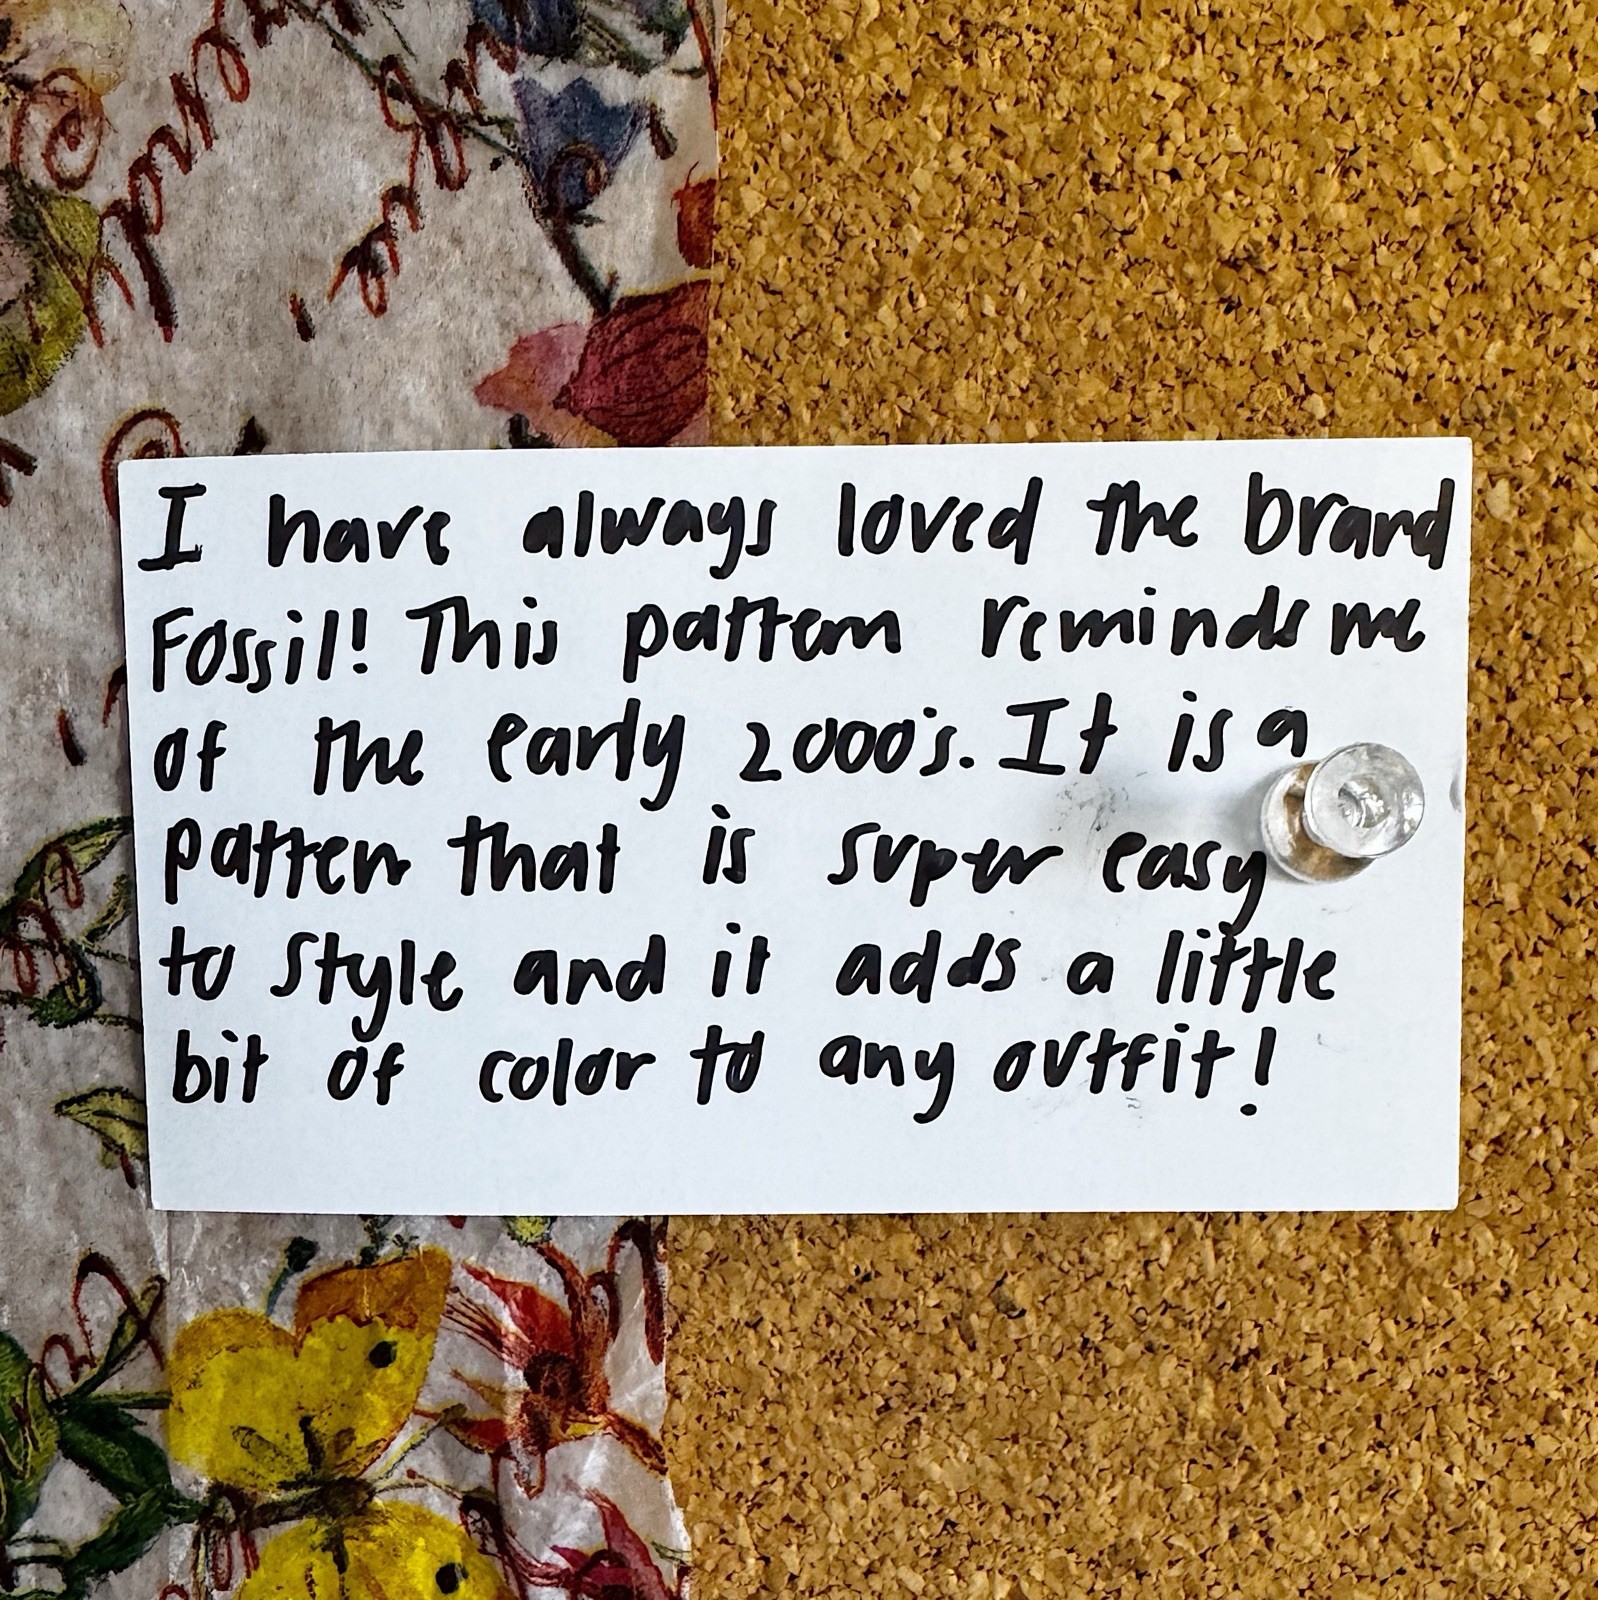 I have always loved the brand
Fossil! This pattern reminds me
of the early 2000's. It is a
patten that is super easy
to style and it adds a little
bit of color to any outfit!